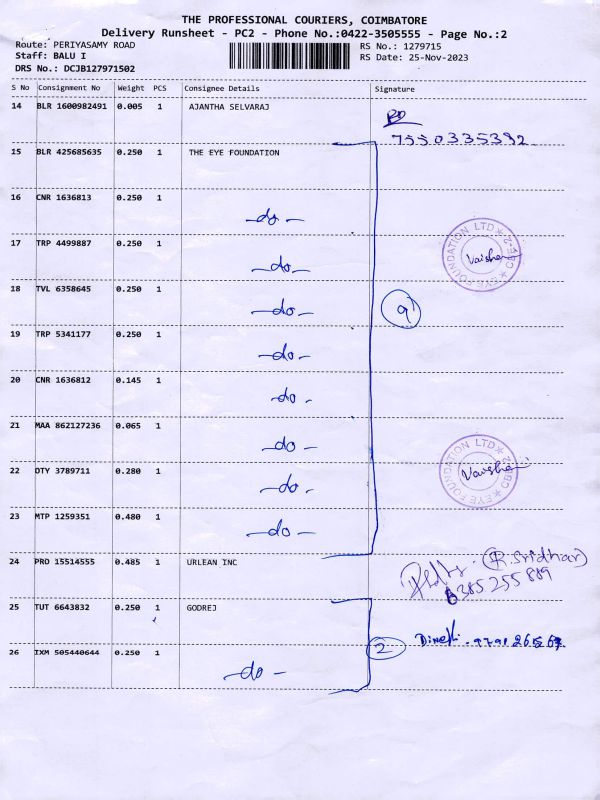 THE PROFESSIONAL COURIERS, COIMBATORE
Delivery Runsheet - PC2 - Phone No.:0422-3505555 - Page No.:2
Route: PERIYASAMY ROAD RS No.: 1279715
Staff: BALU I RS Date: 25-Nov-2023
DRS No.: DCJB127971502
S No Consignment No Weight PCS Consignee Details Signature
14 BLR 1600982491 0.005 1 AJANTHA SELVARAJ
7550335392
15 BLR 425685635 0.250 1 THE EYE FOUNDATION
16 CNR 1636813 0.250 1 -do-
EYE FOUNDATION LTD CBE-2
17 TRP 4499887 0.250 1 -do-
18 TVL 6358645 0.250 1 -do-
9
19 TRP 5341177 0.250 1 -do-
20 CNR 1636812 0.145 1 -do-
21 MAA 862127236 0.065 1 -do-
EYE FOUNDATION LTD CBE-2
22 OTY 3789711 0.280 1 -do-
23 MTP 1259351 0.480 1 -do-
24 PRO 15514555 0.485 1 URLEAN INC (R.Sridhar)
6385255889
25 TUT 6643832 0.250 1 GODREJ
26 IXM 505440644 0.250 1 -do- 2